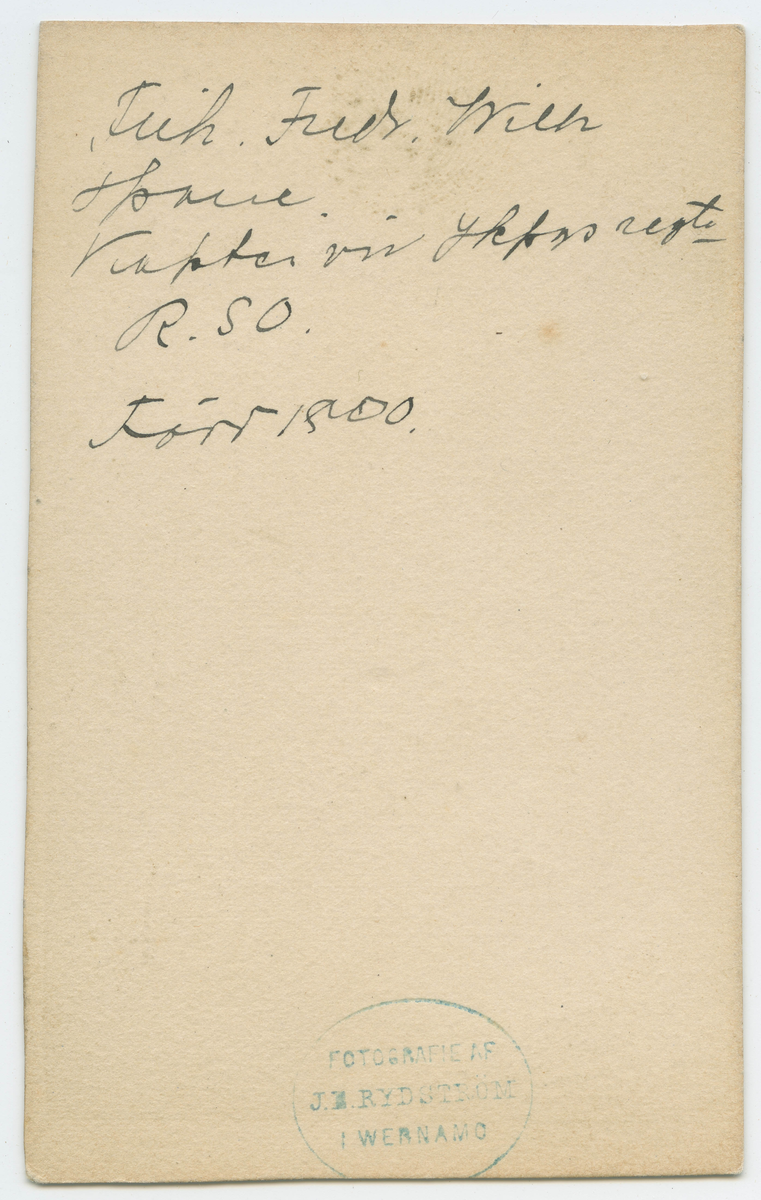 Frih. Fredr. Wilh
Spaue.
Kapten vid Jkpgs regte
R. S O.
Förr 1800.
FOTOGRAFIE AF
J.E.RYDSTRÖM
I WERNAMO